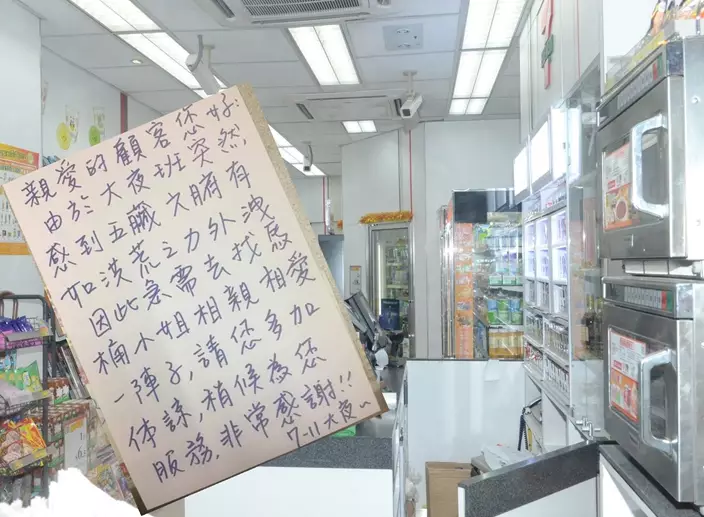 親愛的顧客您好:
由於大夜班突然
感到五臟六腑有
如洪荒之力外洩
因此急需去找馬
桶小姐相親相愛
一陣子,請您多加
体諒,稍候為您
服務,非常感謝!!
7-11大夜